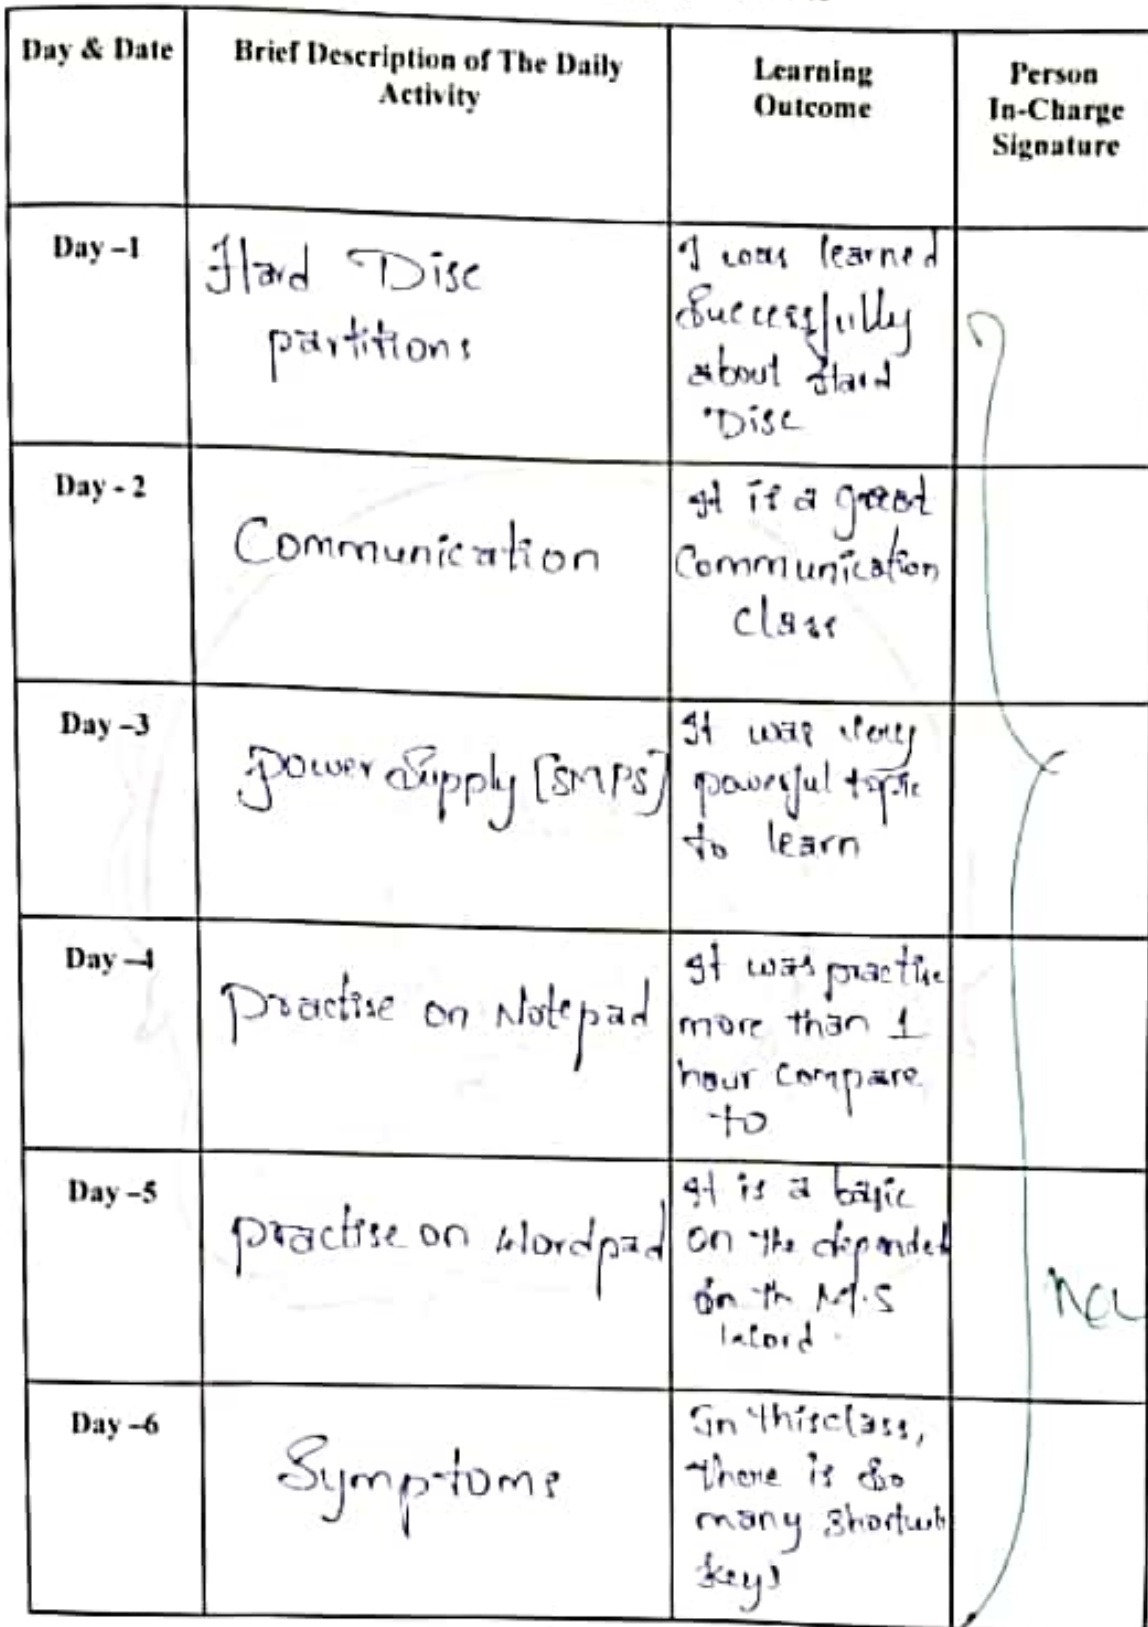 Day & Date
Brief Description of The Daily
Activity
Learning
Outcome
Person
In-Charge
Signature
Day –1
Hard Disc
partitions
I was learned
Successfully
about Hard
Disc
Day - 2
Communication
It is a great
Communication
class
Day –3
Power Supply [SMPS]
It was very
powerful topic
to learn
Day –4
Practise on Notepad
It was practise
more than 1
hour compare
to
Day –5
practise on Wordpad
It is a basic
on the depended
on th M.S
Word.
Day –6
Symptoms
In this class,
there is so
many shortcut
keys